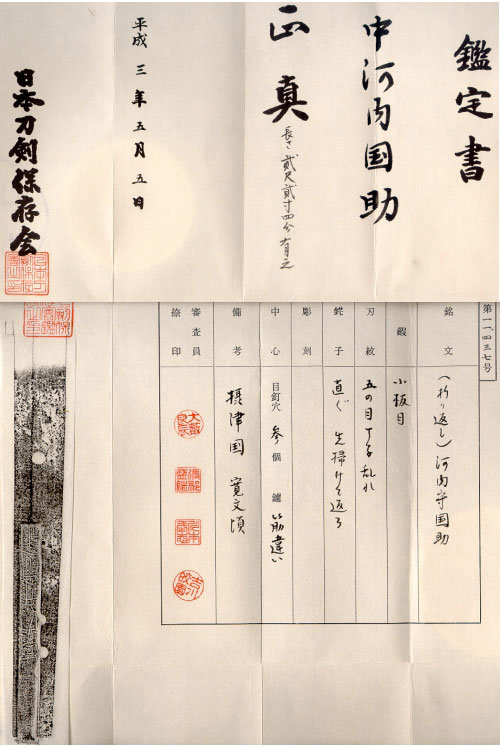 鑑定書
中河内国助
正真
長さ 貳尺貳寸四分有之
平成三年五月五日
日本刀剣保存会
第一一四三七号
銘文 (折り返し)河内守国助
鍛 小板目
刃紋 五の目丁子乱れ
鋩子 直ぐ 先掃けて返る
彫刻
中心 目釘穴 参個 鑢 筋違い
備考 摂津国 寛文頃
審査員
捺印